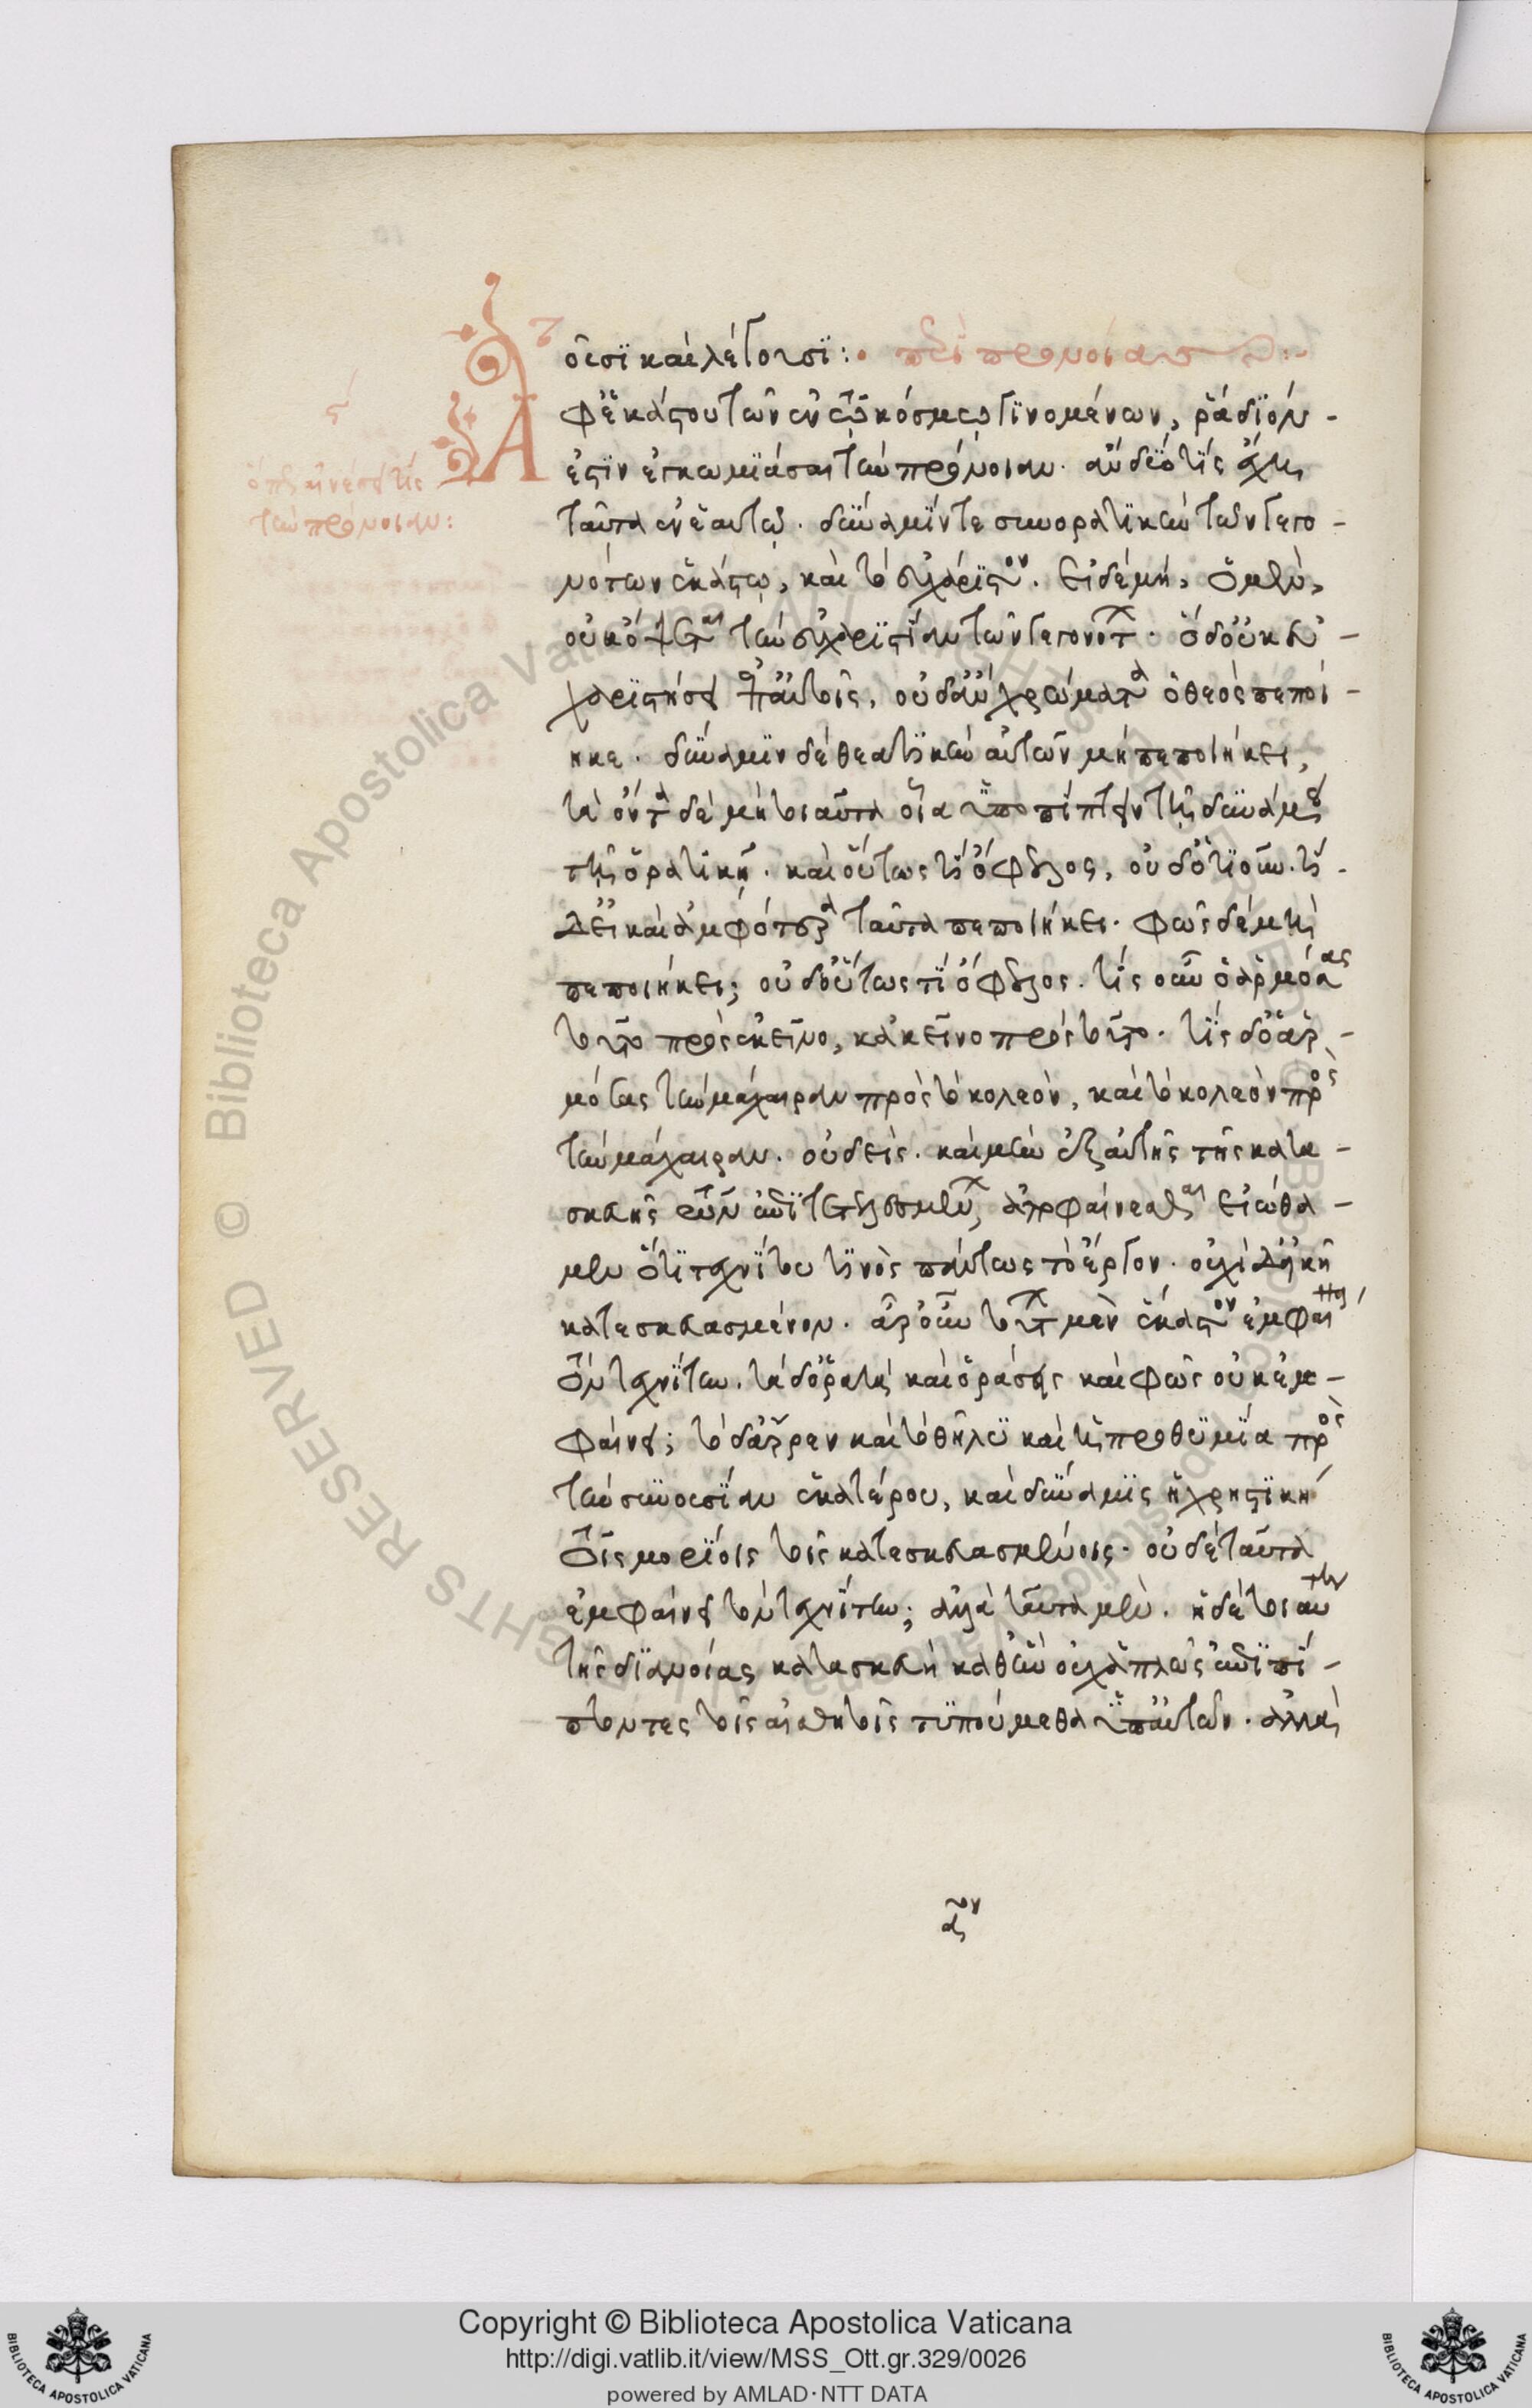 οῦσι καὶ λέγουσι: περὶ προνοίας
Ἀφ' ἑκάστου τῶν ἐν τῷ κόσμῳ γινομένων, ῥάδιόν
ἐστιν ἐγκωμιάσαι τὴν πρόνοιαν. ἂν δύο τὶς ἔχῃ
ταῦτα ἐν ἑαυτῷ. δύναμίν τε συνορατικὴν τῶν γεγο-
νότων ἑκάστῳ, καὶ τὸ εὐχάριστον. εἰ δὲ μὴ, ὁ μὲν,
οὐκ ὄψεται τὴν εὐχρηστίαν τῶν γεγονότων. ὁ δ' οὐκ εὐ-
χαριστήσει ἐπ' αὐτοῖς, οὐδ' ἂν χρώματα ὁ θεὸς πεποι-
ήκε. δύναμιν δὲ θεατικὴν αὐτῶν μὴ πεποιήκει,
τὰ ὄντα δὲ μὴ τοιαῦτα οἷα ὑποπίπτειν τῇ δυνάμει
τῇ ὁρατικῇ. καὶ οὕτως τί ὄφελος, οὐδ' ὁτιοῦν. τί
δ' εἰ καὶ ἀμφότερα ταῦτα πεποιήκει. φῶς δὲ μὴ
πεποιήκει; οὐδ' οὕτως τι ὄφελος. τίς οὖν ὁ ἁρμόσας
τοῦτο πρὸς ἐκεῖνο, κἀκεῖνο πρὸς τοῦτο. τίς δ' ὁ ἁρ-
μόσας τὴν μάχαιραν πρὸς τὸ κολεὸν, καὶ τὸ κολεὸν πρὸς
τὴν μάχαιραν. οὐδείς. καὶ μὴν ἐξ αὐτῆς τῆς κατα-
σκευῆς τῶν ἐπιτετελεσμένων, ἀποφαίνεσθαι εἰώθα-
μεν ὅτι τεχνίτου τινὸς πάντως τὸ ἔργον. οὐχὶ δ' εἰκῆ
κατεσκευασμένον. ἆρ' οὖν τούτων μὲν ἕκαστον ἐμφαίνει
τὸν τεχνίτην. τὰ δ' ὁρατὰ καὶ ὅρασις καὶ φῶς οὐκ ἐμ-
φαίνει; τὸ δ' ἄρρεν καὶ τὸ θῆλυ καὶ ἡ προθυμία πρὸς
τὴν συνουσίαν ἑκατέρου, καὶ δύναμις ἡ χρηστικὴ
τοῖς μορίοις τοῖς κατεσκευασμένοις. οὐδὲ ταῦτα
ἐμφαίνει τὸν τεχνίτην; ἀλλὰ ταῦτα μέν. ἡ δὲ τοιαύτη
τῆς διανοίας κατασκευὴ καθ' ἣν οὐχ ἁπλῶς ἐπιπί-
πτοντες τοῖς αἰσθητοῖς τυπούμεθα ὑπ' αὐτῶν. ἀλλὰ
ϛ
ὁ περαίνεσει τίς
τὴν πρόνοιαν: